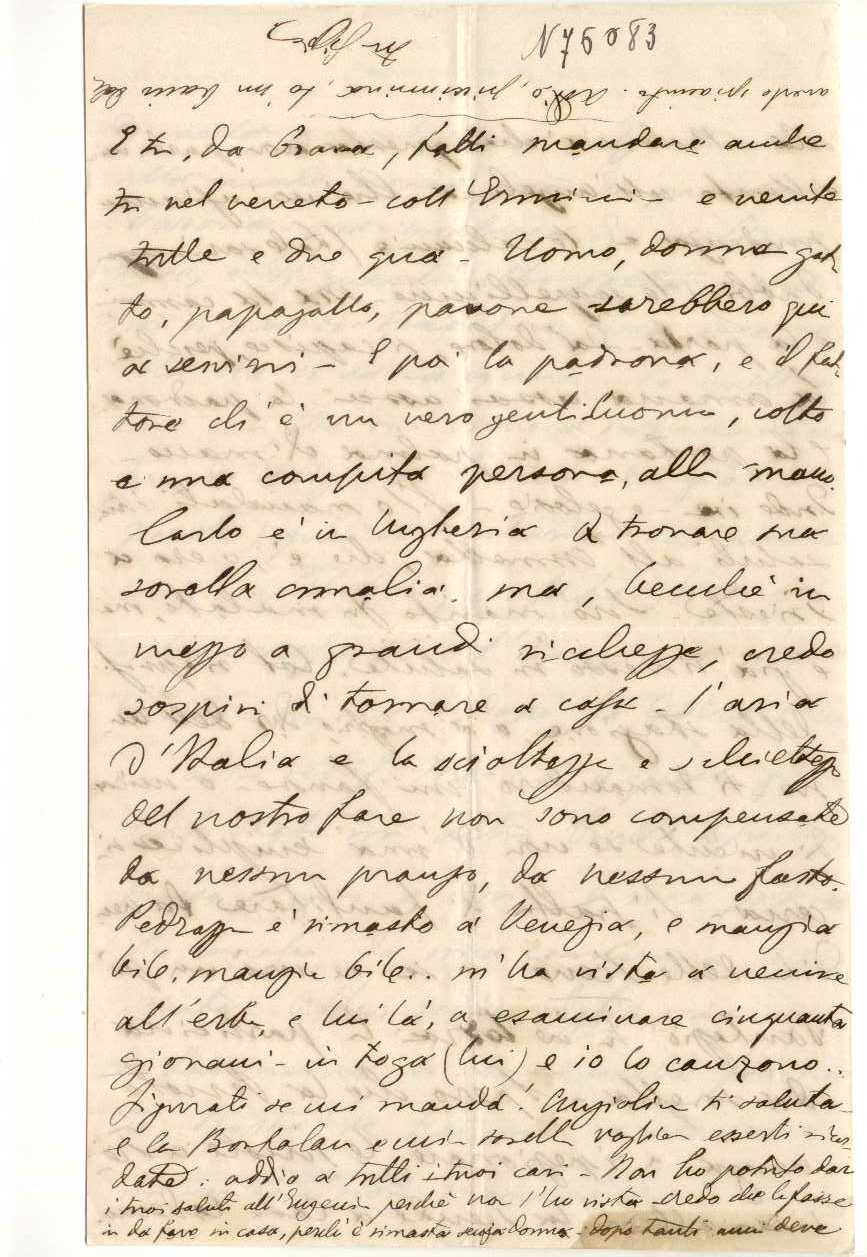 N 75083
averle spiacinto. Addio, , fa un bacio dal
E tu, da brava, fatti mandare anche
tu nel veneto - coll'Erminia - e venite
tutte e due qua - Uomo, donna gat-
to, papagallo, pavone sarebbero qui
a servirvi - E poi la padrona, e il fat-
tore ch'è un vero gentiluomo, colto
e una compita persona, alla mano.
Carlo è in Ungheria a trovare sua
sorella Amalia. ma, benchè in
mezzo a grandi ricchezze, credo
sospiri di tornare a casa - l'aria
d'Italia e la scioltezza e schiettezza
del nostro fare non sono compensate
da nessun pranzo, da nessun fasto.
Pedrazza è rimasto a Venezia, e mangia
bile, mangia bile.. m'ha vista a venire
all'erba, e lui là, a esaminare cinquanta
giovani - in toga (lui) e io lo canzono..
Figurati se mi manda! Angiolina ti saluta -
e la Bortolan e mia sorella vogliono esserti ricor-
date. addio a tutti i tuoi cari - Non ho potuto dar
i tuoi saluti all'Eugenia perchè non l'ho vista - credo che la fosse
in da fare in casa, perch'è rimasta senza donna - dopo tanti anni deve